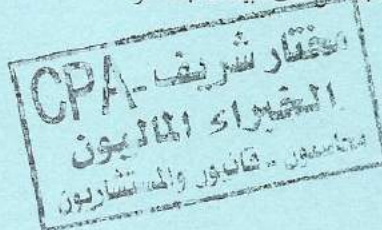 مختار شريف - CPA
الخبراء الماليون
محاسبون - قانونيون والمستشاريون